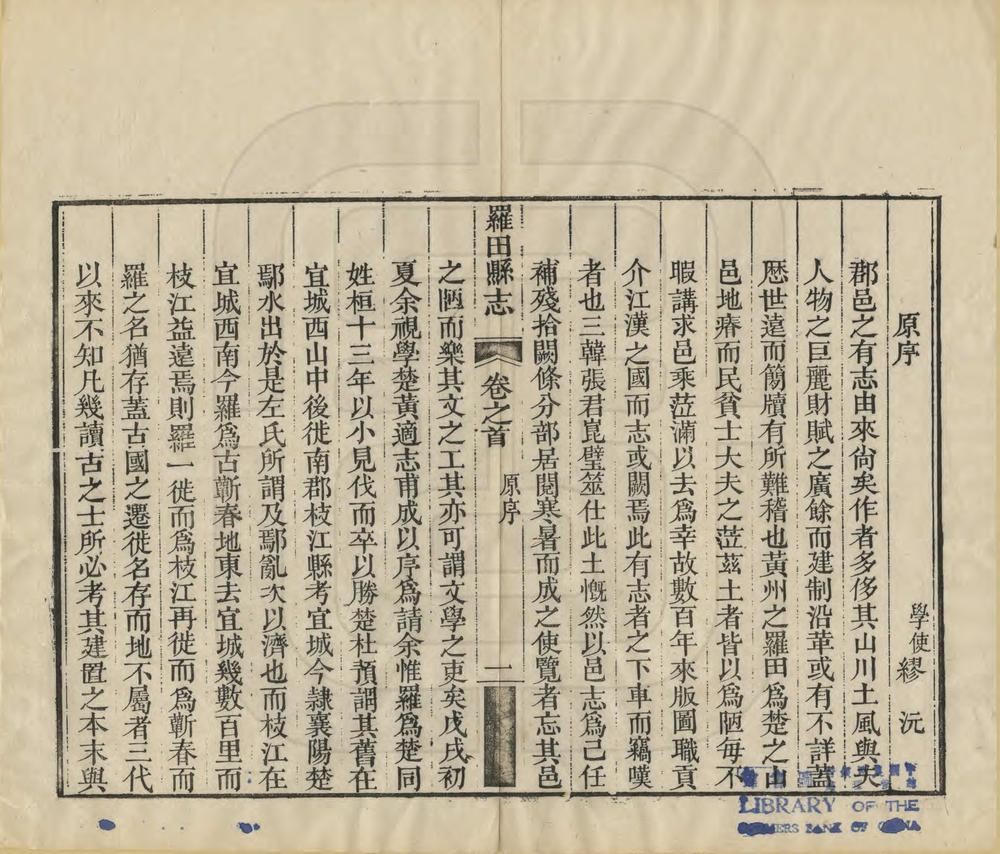 原序
學使繆沅
郡邑之有志由來尙矣作者多侈其山川土風與夫
人物之巨麗財賦之廣餘而建制沿革或有不詳蓋
歷世遠而簡牘有所難稽也黃州之羅田爲楚之山
邑地瘠而民貧士大夫之蒞茲土者皆以爲陋每不
暇講求邑乘蒞滿以去爲幸故數百年來版圖職貢
介江漢之國而志或闕焉此有志者之下車而竊嘆
者也三韓張君崑璧筮仕此土慨然以邑志爲己任
補殘拾闕條分部居閱寒暑而成之使覽者忘其邑
羅田縣志 卷之首 原序 一
之陋而樂其文之工其亦可謂文學之吏矣戊戌初
夏余視學楚黃適志甫成以序爲請余惟羅爲楚同
姓桓十三年以小見伐而卒以勝楚杜預謂其舊在
宜城西山中後徙南郡枝江縣考宜城今隸襄陽楚
鄢水出於是左氏所謂及鄢亂次以濟也而枝江在
宜城西南今羅爲古蘄春地東去宜城幾數百里而
枝江益遠焉則羅一徙而爲枝江再徙而爲蘄春而
羅之名猶存蓋古國之遷徙名存而地不屬者三代
以來不知凡幾讀古之士所必考其建置之本末與
LIBRARY OF THE
BANK OF